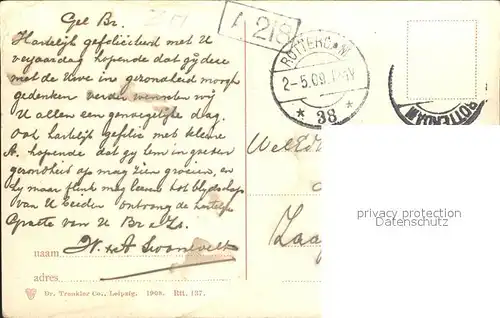 Gel Br.
Hartelijk gefeliciteerd met U
verjaardag hopende dat gij deze
met de Uwe in gezondheid moogt
gedenken verder wenschen wij
U allen een genoegelijke dag.
Ook hartelijk gefelic met kleine
A. hopende dat gij hem in
gezondheid op mag zien groeien, en
zij maar flink mag leeren tot blijdschap
van U beiden ontvang de hartelijke
Groete van U Br e Zs.
naam
adres
Dr. Trenkler Co., Leipzig. 1908. Rtt. 137.
A 218
ROTTERDAM
2-5.09.
* 38 *
ROTTERDAM
WelEd
Zaa
privacy protection
Datenschutz